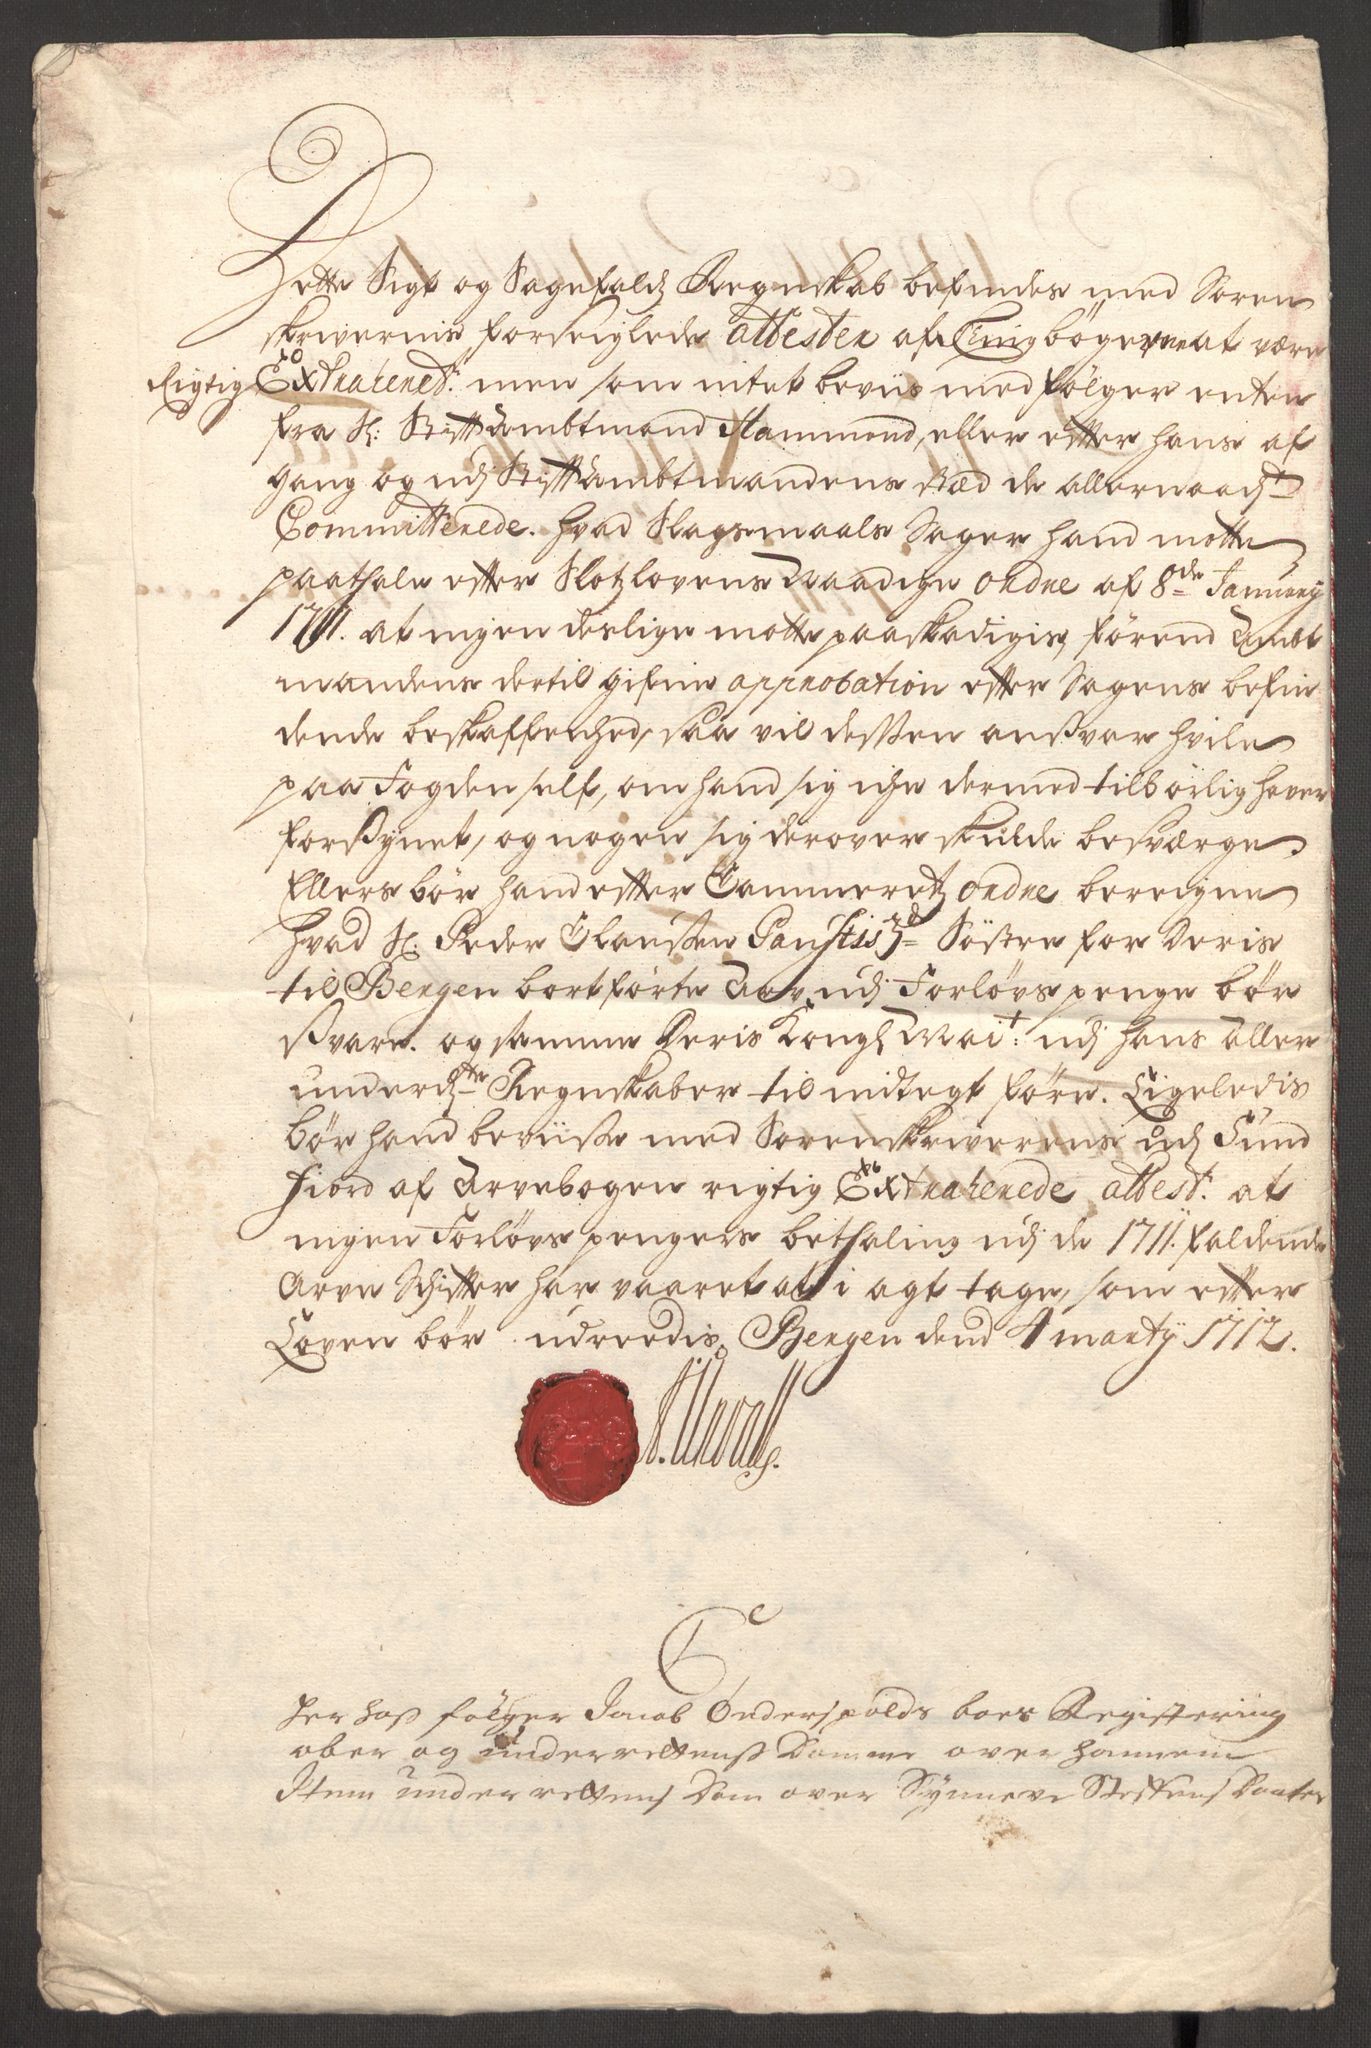 Dette Sigt og Sagefalds Regnskab befindes med Soren
skrivernis forseiglede attester af Tingbøgerne at være
Rigtig Extraherede. men som intet beviis medfølger enten
fra H: Stifft Ambtmand Hammond, eller efter hans af
gang og udj Stifft Ambtmandens stæd de allernaadst
Committerede. hvad Slagsmaals Sager hand motte
paathale efter Slotzlovens Naadige ordre af 8de January
1711. at ingen deslige motte paaskadigis, førend Ambt
mandens dertil gifne approbation efter Sagens befin
dende beskaffenhed, saa vil dessen ansvar hvile
paa Fogden self, om hand sig iche dermed tilbørlig haver
forsynet, og nogen sig derover skulde besværge.
Ellers bør hand efter Cammeretz ordre beregne
hvad H: Peder Claussen Søster for Deris
til Bergen bortførte Arv udj Forlovs penge bør
svare. og samme Deris Kongl Mait: udj hans aller
underdste Regnskaber til indtegt føre. Ligeledis
bør hand beviisse med Sorenskriverens udj Sund
fiord af Arvebogen rigtig Extraherede attest. at
ingen Forlovs pengers bethaling udj de 1711. faldende
Arve Schifter har vaaret at i agt tage, som efter
Loven bør udreedis. Bergen dend 4 marty 1712.
Her hoss følger Jacob boes Registering
ober og underrettenss Domme over hannem
Item underrettens Dom over Synneve Steffens Daater